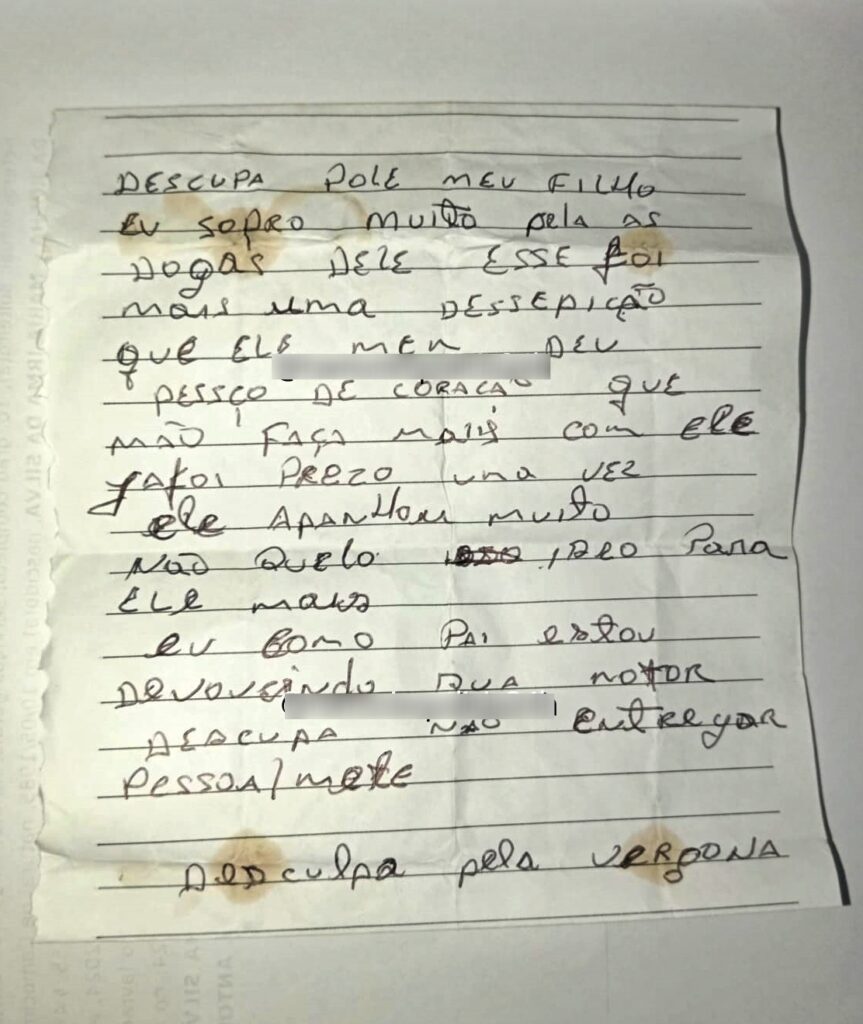 DESCUPA POLE MEU FILHO
EU SOPRO MUITO pela as
DOGAS DELE ESSE FOI
MAIS UMA DESSEPIÇÃO
QUE ELE MEU DEU
PESSÇO DE CORACAO QUE
MÃO FAÇA MAIS COM ELE
JA FOI PREZO UMA VEZ
ELE APANHOU MUITO
NÃO QUELO PARA
ELE MAIS
EU COMO PAI ESTOU
MOTOR
DESCUPA NÃO ENTREGAR
PESSOALMETE
DESCULPA PELA VERGONA